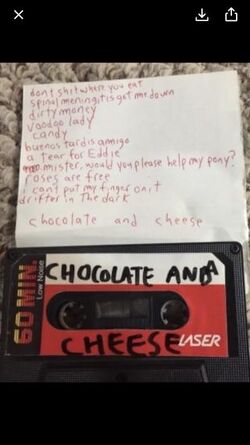 dont shit where you eat
spinal meningitis got me down
dirty money
voodoo lady
candy
buenos tardis amigo
a tear for Eddie
mister, would you please help my pony?
roses are free
i cant put my finger on it
drifter in the dark
chocolate and cheese
60 MIN.
Low Noise
CHOCOLATE AND
A
CHEESE
LASER